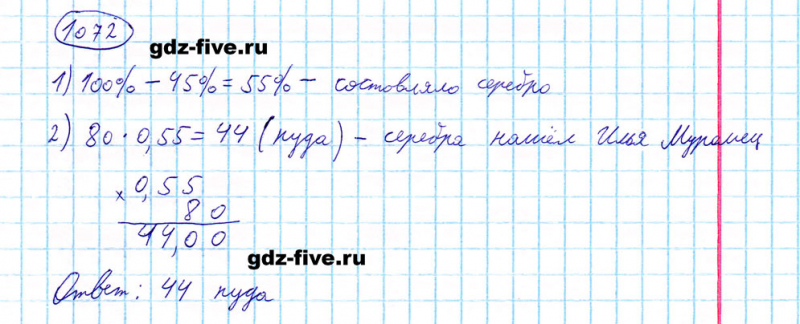 1072
gdz-five.ru
1) 100% - 45% = 55% - составляло серебро
2) 80 · 0,55 = 44 (пуда) - серебра нашёл Илья Муромец
× 0,55
80
44,00
gdz-five.ru
Ответ: 44 пуда